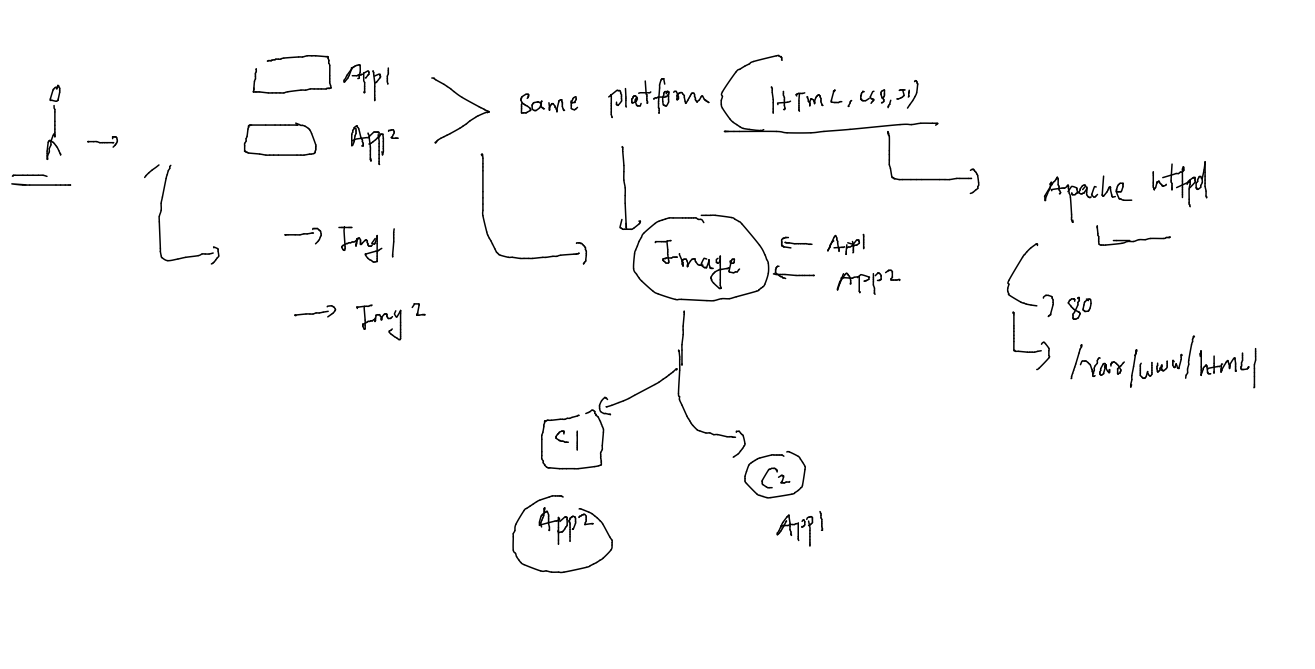 App1
App2
same platform (HTML, css, JS)
Apache httpd
80
/var/www/html/
Img1
Img2
Image
App1
App2
C1
App2
C2
App1